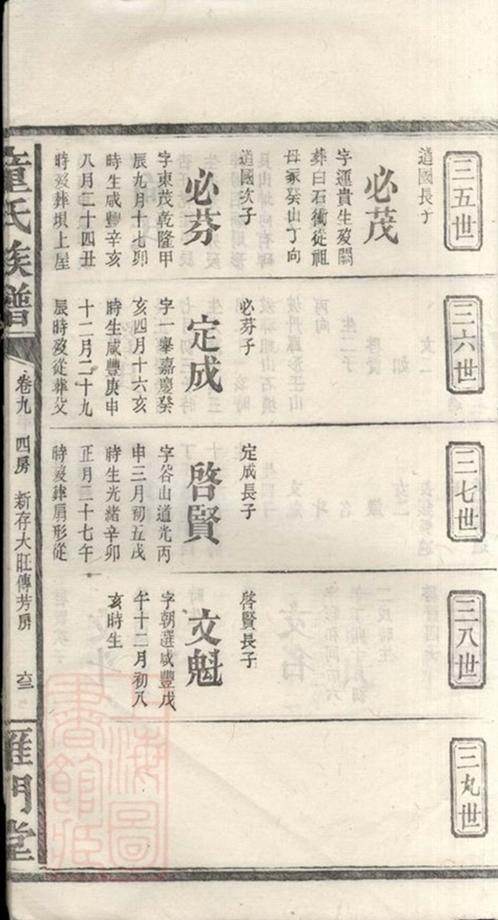 三五世
道國長子
必茂
字運貴生歿闕
葬白石衝從祖
母冢癸山丁向
道國次子
必芬
字東茂乾隆甲
辰九月十七卯
時生咸豐辛亥
八月二十四丑
時歿葬垻上屋
三六世
必芬子
定成
字一舉嘉慶癸
亥四月十六亥
時生咸豐庚申
十二月二十九
辰時歿從葬父
三七世
定成長子
啓賢
字谷山道光丙
申三月初五戌
時生光緒辛卯
正月二十七午
時歿葬扇形從
三八世
啓賢長子
文魁
字朝選咸豐戊
午十二月初八
亥時生
三九世
童氏族譜
卷九 四房 新存大旺傳芳房
六二
雁門堂
上海圖書館藏